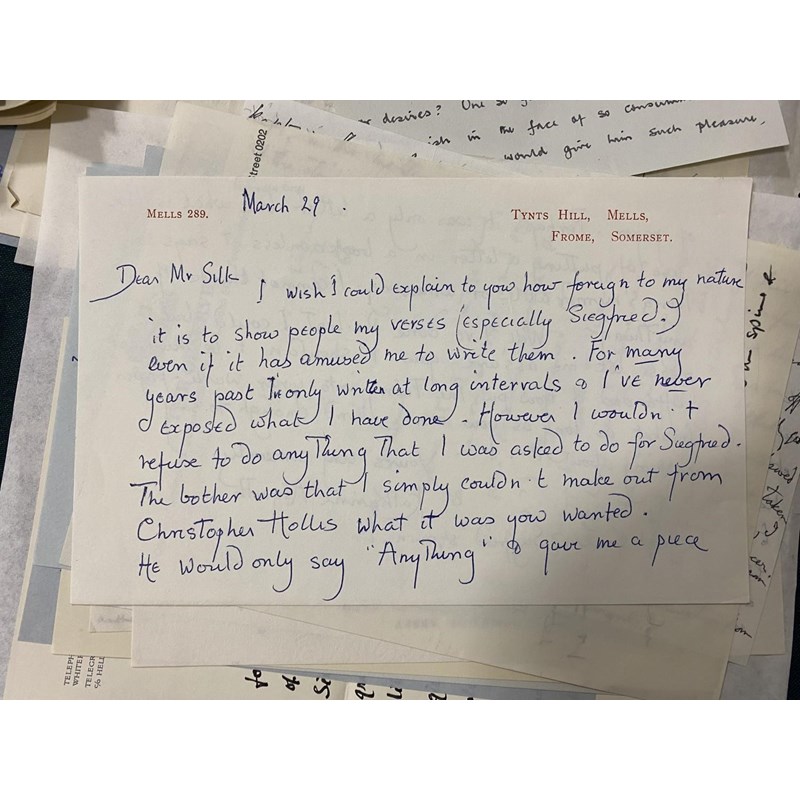 desires? One
in the face of so
would give him such pleasure,
street 0202
MELLS 289.
March 29.
TYNTS HILL, MELLS,
FROME, SOMERSET.
Dear Mr Silk
I wish I could explain to you how foreign to my nature
it is to show people my verses (especially Siegfried.)
even if it has amused me to write them. For many
years past I've only written at long intervals & I've never
exposed what I have done. However I wouldn't
refuse to do anything that I was asked to do for Siegfried.
The bother was that I simply couldn't make out from
Christopher Hollis what it was you wanted.
He would only say "Anything" & gave me a piece
TELEPH
WHITEH
TELEGR
c/o HELL
to
of